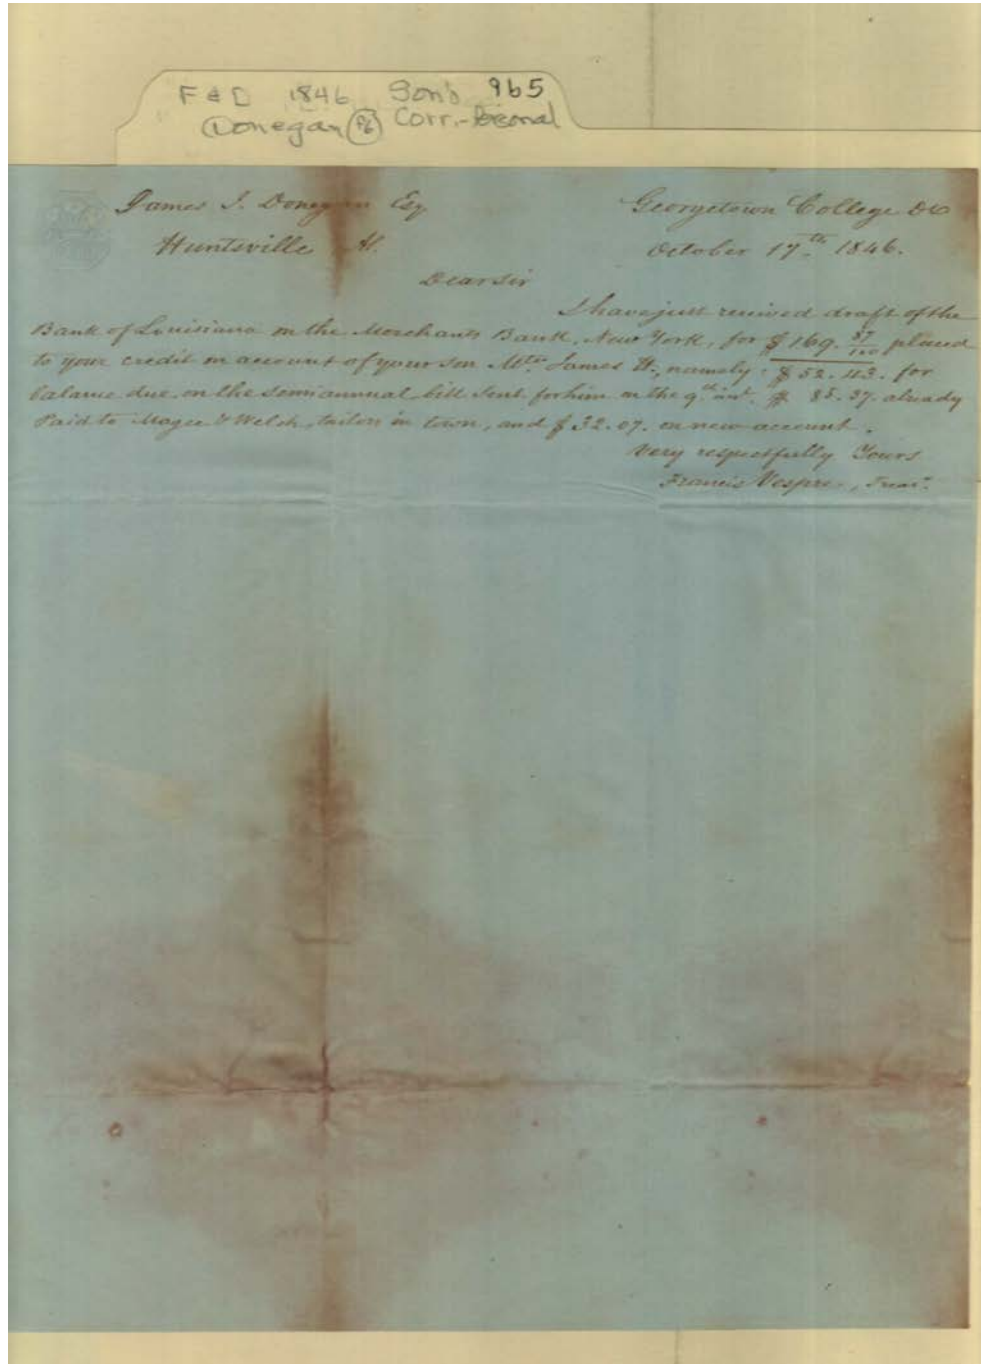 F & D 1846 Son's 965
Donegan (P6) Corr.-Personal
James J. Donegan Esq
Georgetown College DC
Huntsville Al.
October 17th 1846.
Dear Sir
I have just received draft of the
Bank of Louisiana on the Merchants Bank, New York, for $169. 87/100 placed
to your credit on account of your son Mtr James H., namely: $52.43. for
balance due on the semiannual bill sent for him on the 9th inst. $ 85.37. already
Paid to Magee & Welch, tailors in town, and $32.07. on new account.
Very respectfully Yours
Francis Vespre, Treasr.